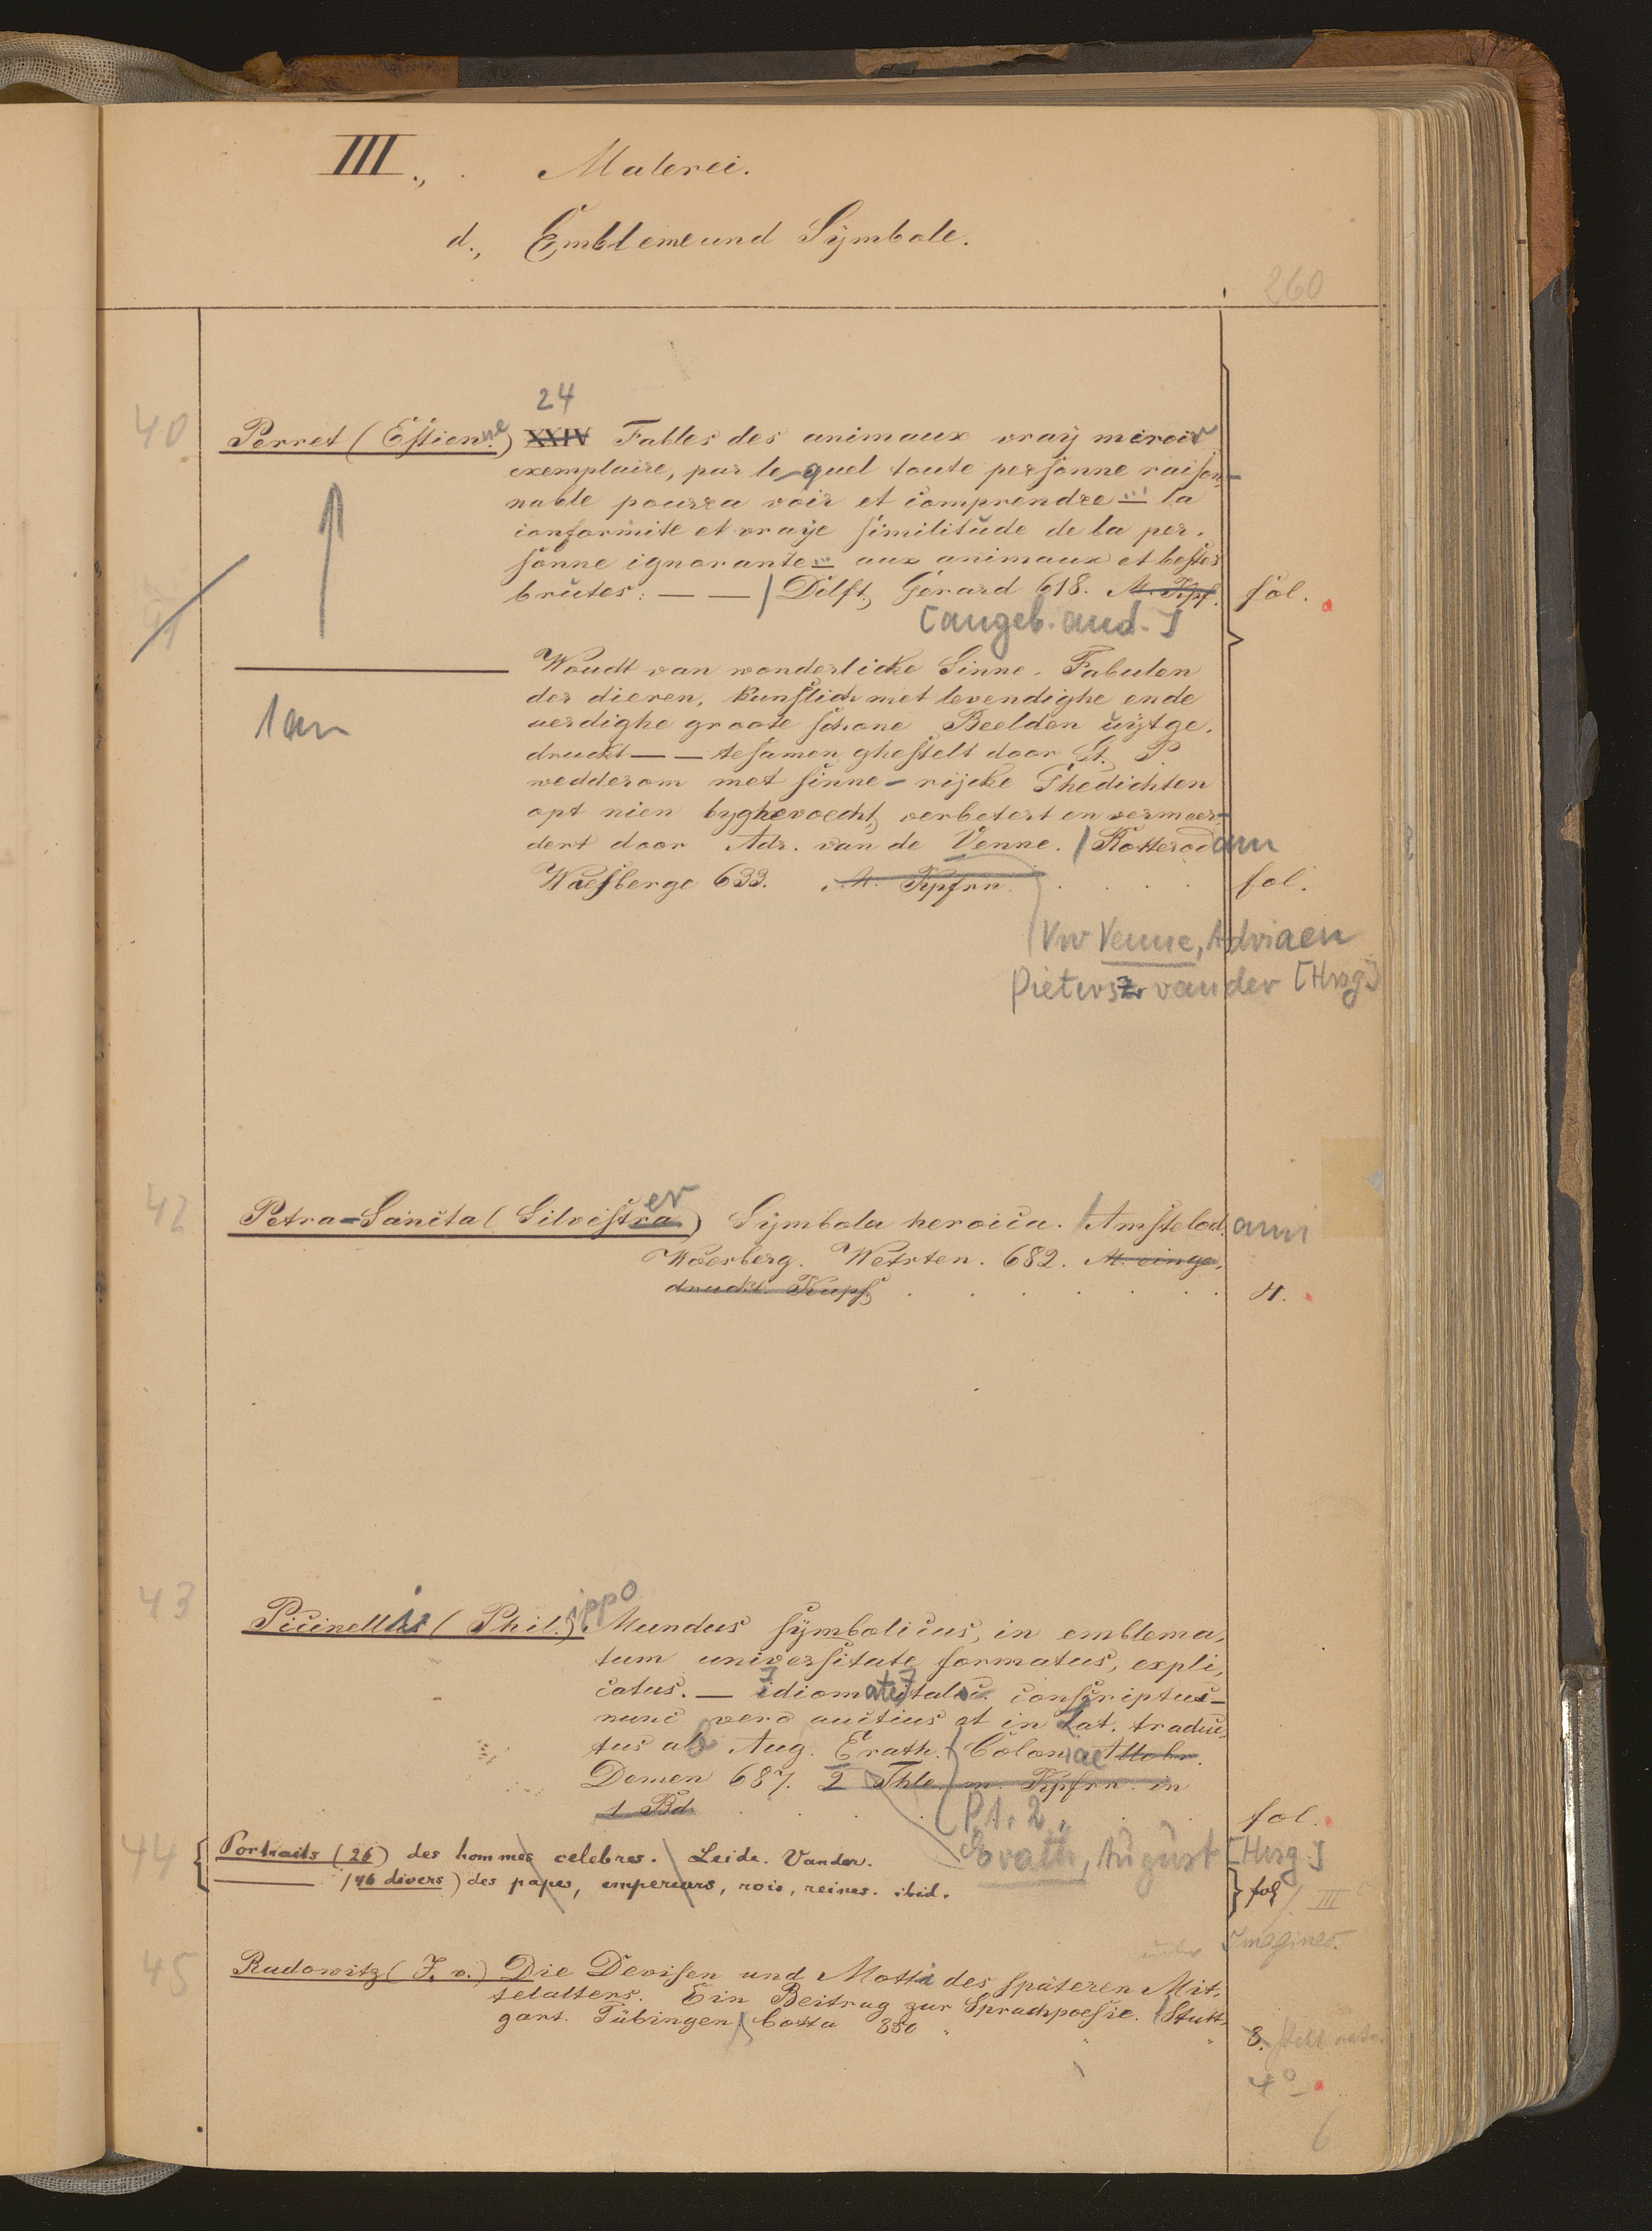 III., Malerei.
d., Embleme und Symbole.
260
24
40 Perret (Estienne) XXIV Fables des animaux vray miroir
exemplaire, par le quel toute personne raison-
nable pourra voir et comprendre ... la
conformite et vraye similitude de la per-
sonne ignorante ... aux animaux et bestes
brutes: — — / Delft, Gerard 618. M. Kpf. fol.
[angeb. and.]
41
——— Woudt van wonderlicke Sinne. Fabulen
der dieren, kunstlich met levendighe ende
aerdighe groote schone Beelden uijtge-
1 an
druckt — — tesamen ghestelt door St. P.
wedderom met sinne-rijcke Ghedichten
opt nien byghevoecht, verbetert en vermeer-
dert door Adr. van de Venne. / Rotterodam
Waesberge 633. M. Kpfrn. fol.
Vw Venne, Adriaen
Pietersz van der [Hrsg.]
42 Petra-Sancta (Silvestra er) Symbola heroica. / Amstelod. ami
Waesberg. Wetsten. 682. M. einge-
druckt. Kupf. 4.
43 Picinelli (Phil. ippo) Mundus symbolicus, in emblema-
tum universitate formatus, expli-
catus. — idiomate ital. conscriptus —
nunc vero auctius et in Lat. traduc-
tus ab Aug. Erath. / Coloniae
Demen 687. 2 Thle. m. Kpfrn. in
1 Bd. fol.
(Pt. 2.
Erath, August [Hrsg.]
44 Portraits (26) des hommes celebres. Leide. Vander.
——— (46 divers) des papes, empereurs, rois, reines. ibid. fol.
III
Imagines.
45 Radowitz (J. v.) Die Devisen und Motti des späteren Mit-
telalters. Ein Beitrag zur Spruchpoesie. / Stutt-
gart. Tübingen, Cotta 850 8.
4°
6